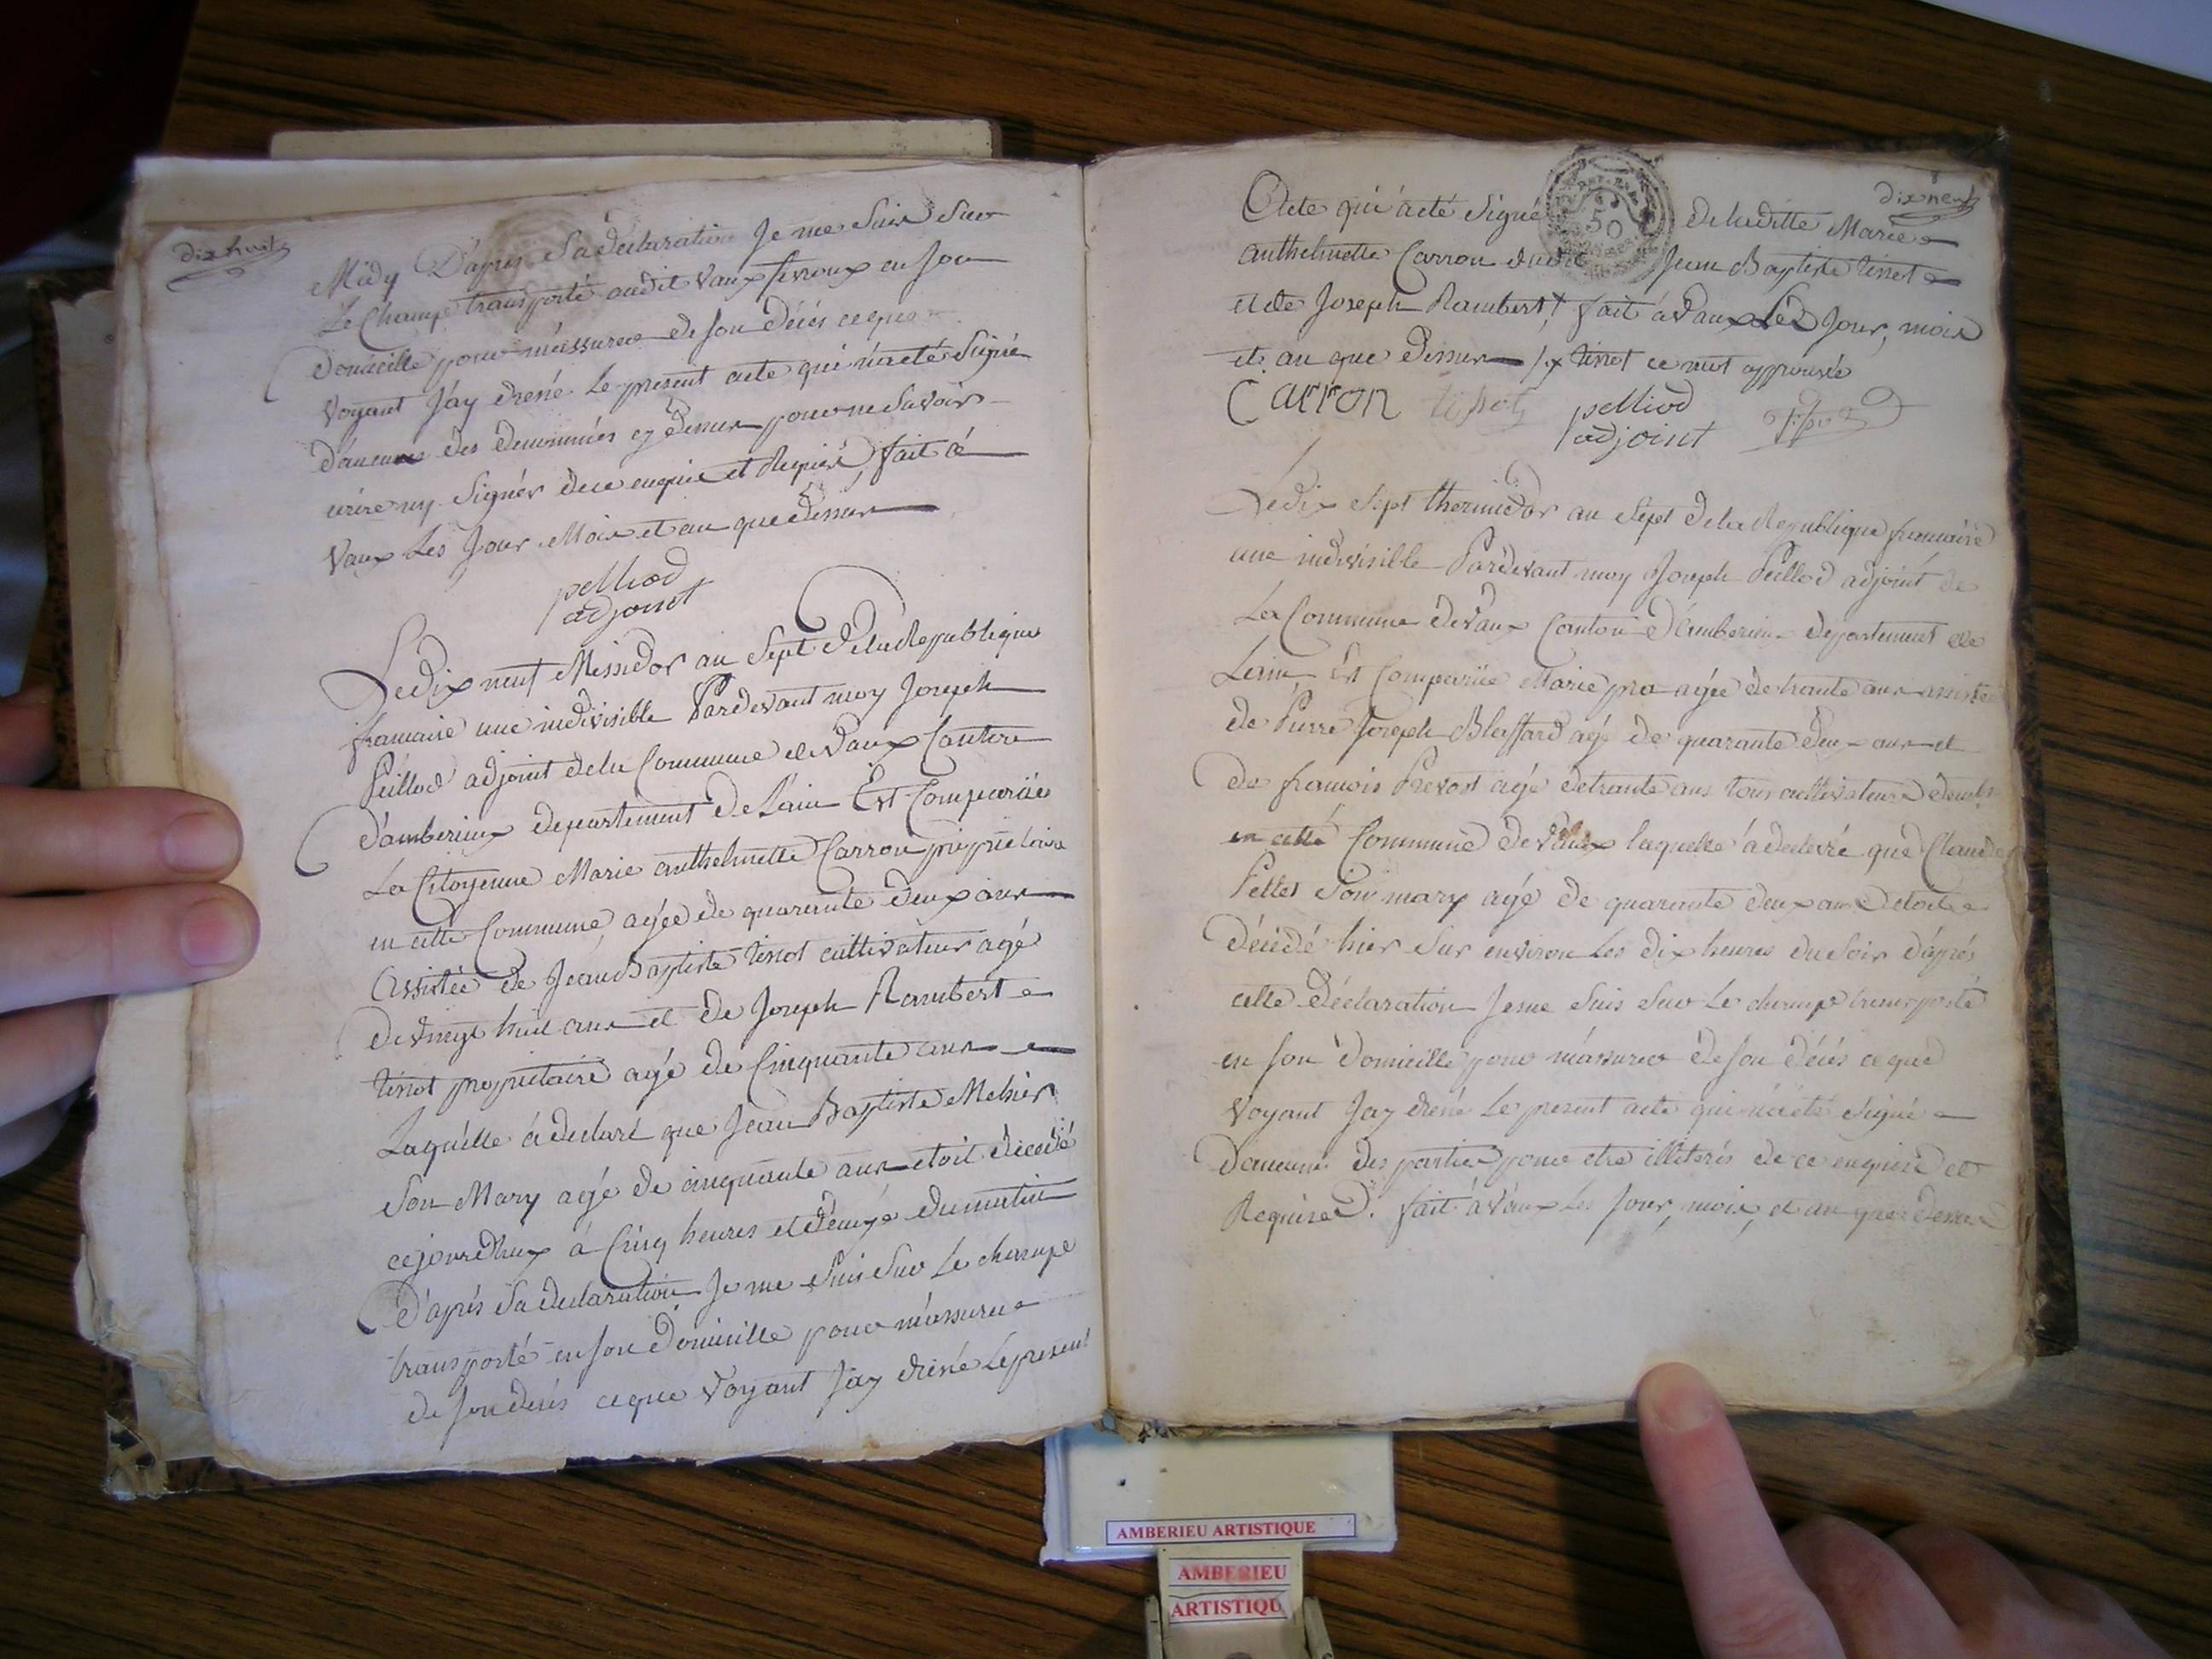 dix huit
Midy D'apres Sa declaration Je me Suis Sur
Le Champ transporté audit Vaux fevroux en Son
Domicille pour m'assurer de Son Décés ceque
Voyant J'ay dréné Le present acte qui n'a eté Signé
d'aucuns des denommés cy dessus pour ne Savoir
ecrire ny Signér de ce enquis et Requis, fait à
Vaux Les Jour Mois et an que dessus
pelliod
adjoint
Le dix neuf Messidor an Sept De la Republique
francaise une indivisible Pardevant moy Joseph
Peillod adjoint de la Commune de Vaux Canton
d'amberieux departement De L'ain Est Comparüe
La Citoyenne Marie anthelmette Carron propriétaire
en cette Commune, agée de quarante deux ans
Assistée de Jean Baptiste tissot cultivateur agé
de vingt huit ans et de Joseph Rambert
tissot propriétaire agé de Cinquante ans
Laquelle à declaré que Jean Baptiste
Son Mary agé de cinquante ans etoit décedé
cejourdhuy à Cinq heures et demye du matin
D'aprés Sa declaration Je me Suis Sur Le champ
transporté en Son Domicille pour m'assurer
de Son decés ceque Voyant J'ay dréné Le present
dix neuf
Acte qui à eté Signé de laditte Marie
anthelmette Carron dudit Jean Baptiste tissot
et de Joseph Rambert fait à Vaux Les Jour, mois
et an que dessus tissot ce mot approuvé
Carron tissot pelliod
adjoint
Le dix Sept thermidor an Sept de la Republique francaise
une indivisible Pardevant moy Joseph Peillod adjoint de
La Commune de Vaux Canton d'amberieu departement de
L'ain Est Comparüe Marie agée de trante ans assistée
de Pierre Joseph Blaffard agé de quarante deux ans et
de francois Prevost agé de trante ans tous cultivateurs
en cette Commune de Vaux laquelle à declaré que Claude
Pettet Son mary agé de quarante deux ans etoit
décédé hier Sur environ Les dix heures du Soir d'aprés
cette déclaration Je me Suis Sur Le champ transporté
en Son Domicille pour m'assurer de Son décés ceque
Voyant J'ay dréné Le present acte qui n'a eté Signé
d'aucune des parties pour etre illiterés de ce enquis et
Requise. fait à Vaux Les Jour, mois, et an que dessus
AMBERIEU ARTISTIQUE
AMBERIEU
ARTISTIQU